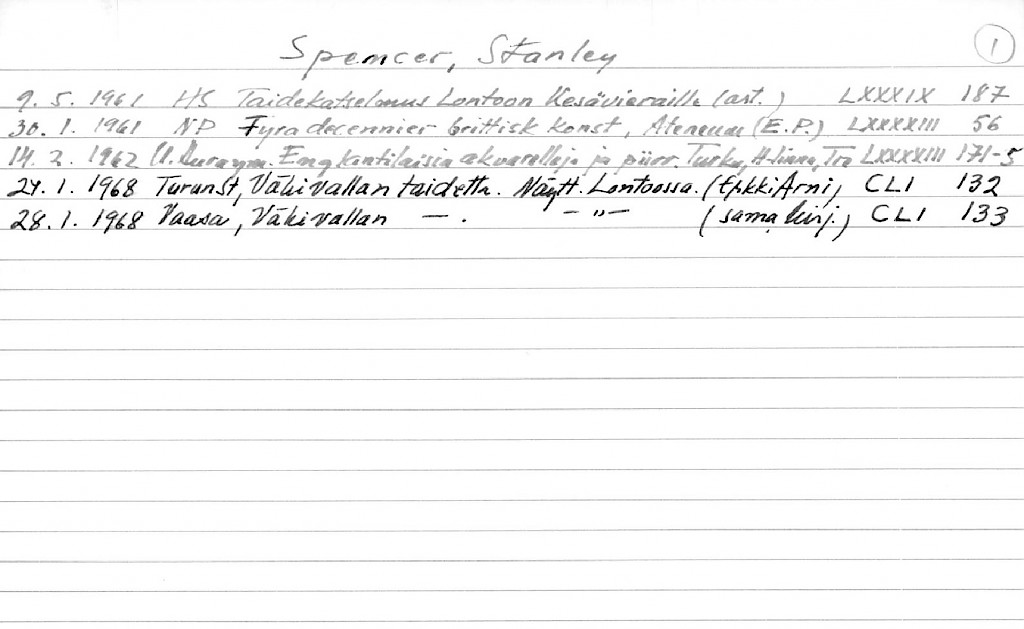 Spencer, Stanley
1
9. 5. 1961 HS Taidekatselmus Lontoon Kesävieraille (art.) LXXXIX 187
30. 1. 1961 NP Fyra decennier brittisk konst, Ateneum (E.P.) LXXXXIII 56
14. 2. 1962 U. Aura ym. Englantilaisia akvarelleja ja piirr. Turku, H-linna, Tre LXXXXIII 171-5
24. 1. 1968 Turunst, Väkivallan taidetta. Näytt. Lontoossa. (Erkki Arni) CLI 132
28. 1. 1968 Vaasa, Väkivallan —. —"— (sama kirj.) CLI 133